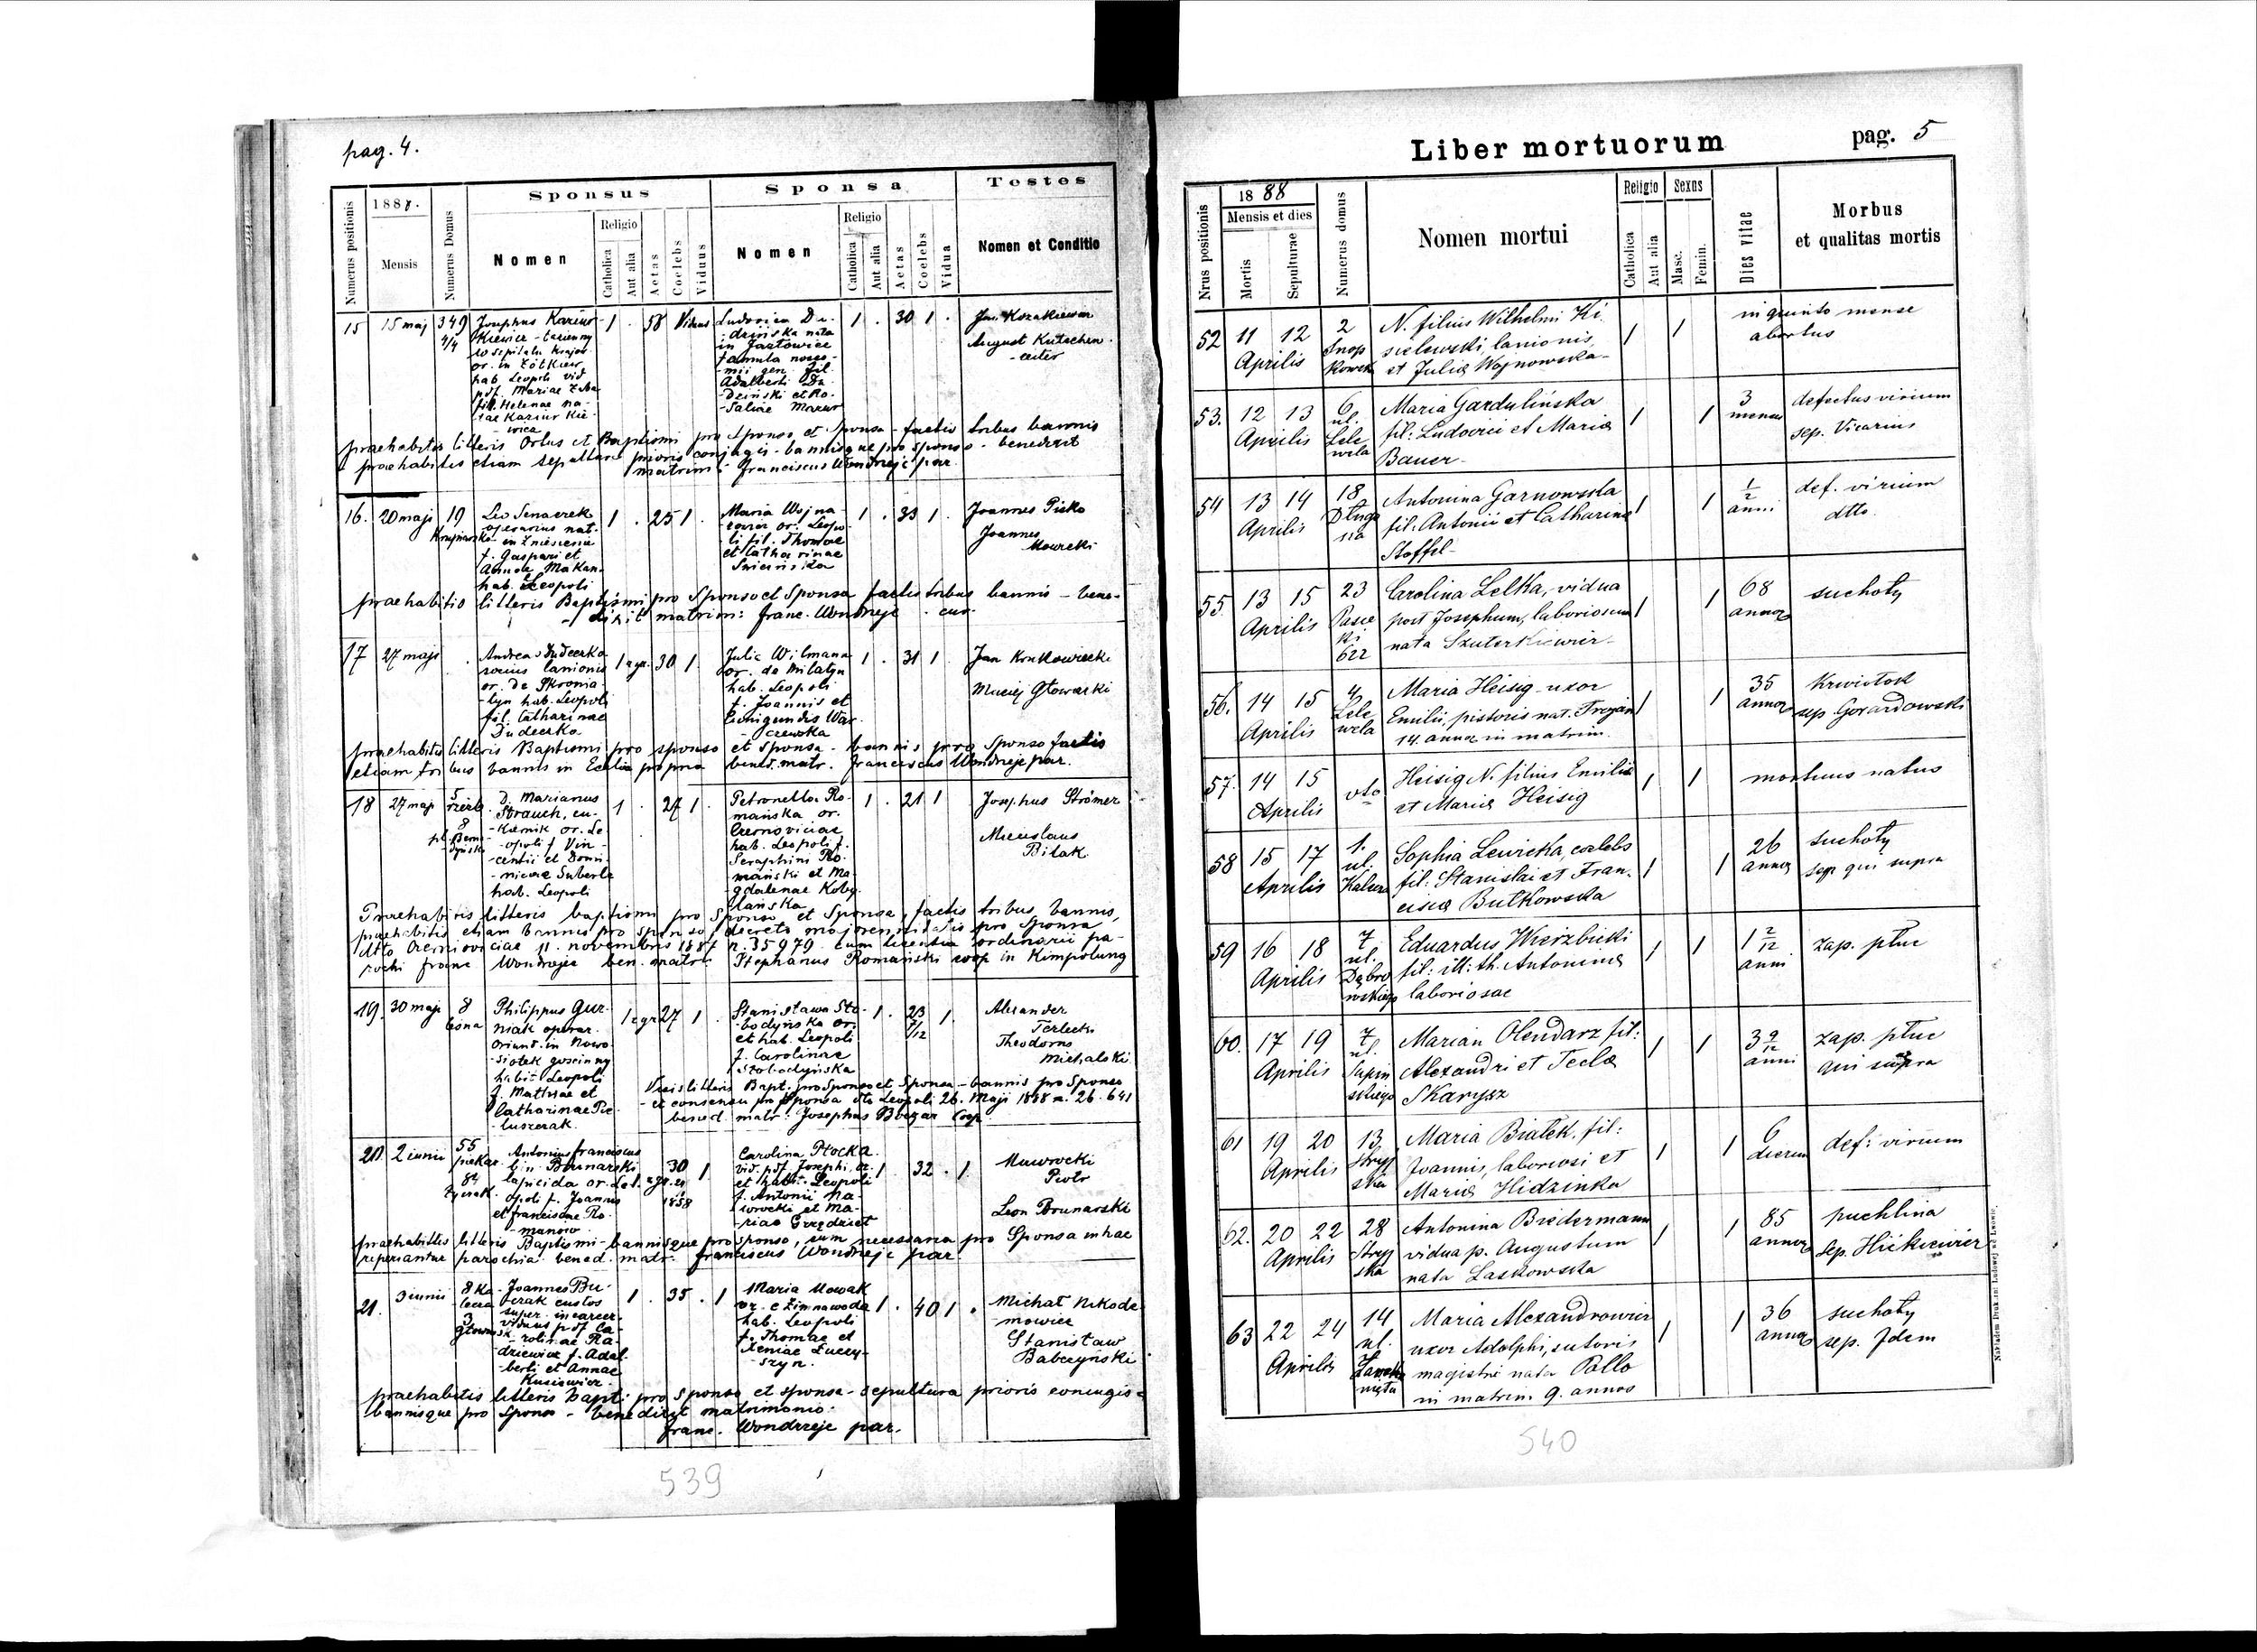 pag. 4.
Sponsus
Sponsa
Testes
Numerus positionis
1888.
Mensis
Numerus Domus
Nomen
Religio
Catholica
Aut alia
Aetas
Coelebs
Viduus
Nomen
Religio
Catholica
Aut alia
Aetas
Coelebs
Vidua
Nomen et Conditio
15 15 maj 349 4/4
Josephus Kazius
kiewicz
w szpitalu krajow.
or. in Żółkiew
hab. Leopoli vid.
p. df. Mariae
fil. Helenae na-
tae Kaziur kie-
wicz
1 . 58 Viduus
Ludovica Du-
dzińska nata
in Jazłowiec
famula
gen. fil.
Adalberti Du-
dziński et Ro-
saliae Mazur
1 . 30 1 .
August Kutschen-
reiter
praehabitis litteris Ortus et Baptismi pro Sponso et Sponsa - factis tribus bannis
praehabitis etiam sepulturae prioris conjugis - bannisque pro sponso - benedixit
matrim: Franciscus Wondreje par.
16. 20 maji 19
operarius nat.
in Zniesienie
f. Gaspari et
Annae Makan.
hab. Leopoli
1 . 25 1 .
Maria Wojna-
rowicz or. Leopo-
li fil. Thomae
et Catharinae
1 . 33 1 .
Joannes Pisko
Joannes
Mowrcki
praehabitis litteris Baptismi pro Sponso et Sponsa factis tribus bannis - bene-
dixit matrim: Franc. Wondreje - cur.
17 27 maji .
Andreas Dudeczko
socius lanionis
or. de Skronia-
tyn hab. Leopoli
fil. Catharinae
Dudeczko
1 r.gr. 30 1
Julie Wilmann
or. de Milatyn
hab. Leopoli
f. Joannis et
Cunigundis War-
czewska
1 . 31 1
Jan Krukowiecki
Maciej Głowacki
praehabitis litteris Baptismi pro sponso et Sponsa - bannis pro Sponso factis
etiam tribus bannis in Ecclia propria bened. matr. Franciscus Wondreje par.
18 27 maji
8
pl. Berna-
dyński
D. Marianus
Strauch, cu-
kiernik or. Le-
opoli f. Vin-
centii et Domi-
nicae Suberle
hab. Leopoli
1 . 27 1 .
Petronella Ro-
mańska or.
Czernoviciae
hab. Leopoli f.
Seraphini Ro-
mański et Ma-
gdalenae Koby-
lańska
1 . 21 1
Josephus Strömer
Mieceslaus
Bilak
Praehabitis litteris baptismi pro Sponso et Sponsa, factis tribus bannis,
praehabitis etiam bannis pro sponso, decreto majorennitatis pro Sponsa
dtto Czernoviciae 11. novembris 1887 n. 35979 cum licentia ordinarii pa-
rochi franc Wondreje ben. matr. Stephanus Romański coop in Kimpolung
19. 30 maji 8
Leona
Philippus Gur-
niak operar.
oriund. in Nowo-
siołek gościnny
habit. Leopoli
f. Mathiae et
Catharinae Pie-
luszczak.
1 r gr 27 1 .
Stanisława Sło-
bodyńska or.
et hab. Leopoli
f. Carolinae
Słobodyńska
1 . 23 7/12 1 .
Alexander
Terlecki
Theodorus
Michalski
Visis litteris Bapt. pro Sponso et Sponsa - bannis pro Sponso
et consensu pro Sponsa dto Leopoli 26. Maji 1888 n. 26.641
bened. matr: Josephus Coop.
20. 2 iunii 55
piekar.
Antonius Franciscus
bin. Brunarski
lapicida or. Le-
opoli f. Joannis
et Franciscae Ro-
manow
30 1
1858
Carolina Płocka
vid. p. df. Josephi, or.
et habit. Leopoli
f. Antonii Na-
wrocki et Ma-
riae
1 . 32 . 1 .
Mawrocki
Piotr
Leon Brunarski
praehabitis litteris Baptismi - bannisque pro sponso, cum necessaria pro Sponsa in hac
reperiantur parochia bened. matr. Franciscus Wondreje par
21. 3 iunii 8 Ka-
lecza
3
Joannes Bu-
czak custos
super. in carcer.
viduus p. df. Ca-
rolinae Ra-
dziewicz f. Adal-
berti et Annae
Kusiewicz.
1 . 35 . 1
Maria Nowak
or. e Zimnawoda
hab. Leopoli
f. Thomae et
Xeniae Łuczy-
szyn.
1 . 40 1 .
Michał Nikode-
mowicz
Stanisław
Babczyński
praehabitis litteris Bapti. pro sponso et sponsa - sepultura prioris coniugis -
bannisque pro Sponso - benedixit matrimonio.
franc. Wondrzeje par.
539
Liber mortuorum pag. 5
Nrus positionis
1888
Mensis et dies
Mortis
Sepulturae
Numerus domus
Nomen mortui
Religio
Catholica
Aut alia
Sexus
Masc.
Femin.
Dies vitae
Morbus
et qualitas mortis
52 11 12 Aprilis
2
Snop
kowska
N. filius Wilhelmi Ki-
sielewski, lanionis,
et Juliæ Wojnowska -
1 1
in quinto mense
abortus
53. 12 13 Aprilis
6
ul.
Lele
wela
Maria Gardulińska
fil: Ludovici et Mariæ
Bauer -
1 1
3
menses
defectus virium
sep. Vicarius
54 13 14 Aprilis
18
Długo
sza
Antonina Garnowska
fil: Antonii et Catharinæ
Stoffel -
1 1
1/2
anni
def. virium
dtto.
55 13 15 Aprilis
23
Pasie
ki
622
Carolina Lelka, vidua
post Josephum, laboriosum
nata Szuterkiewicz -
1 1
68
annor
suchoty
56. 14 15 Aprilis
4
Lele
wela
Maria Heisig - uxor
Emilii, pistoris nat. Trojan
14. annor in matrim.
1 1
35
annor
Krwiotok
sep. Gorardowski
57. 14 15 Aprilis
dto
Heisig N. filius Emilii
et Mariæ Heisig
1 1
mortuus natus
58 15 17 Aprilis
1.
ul.
Kalecza
Sophia Lewicka, cælebs
fil: Stanislai et Fran-
ciscæ Butkowska
1 1
26
annor
suchoty
sep. qui supra
59 16 18 Aprilis
7
ul.
Dąbro
wskiego
Eduardus Wierzbicki
fil: ill: th. Antoninæ
laboriosae
1 1
1 2/12
anni
zap. płuc
60. 17 19 Aprilis
7
ul.
Supiń
skiego
Marian Olendarz fil:
Alexandri et Teclæ
Skarysz
1 1
3 9/12
anni
zap. płuc
qui supra
61 19 20 Aprilis
13
Stryj
ska
Maria Białek, fil:
Joannis, laboriosi et
Mariæ Hidzinka
1 1
6
dierum
def: virium
62. 20 22 Aprilis
28
Stryj
ska
Antonina Biedermann
vidua p. Augustum
nata Laskowska
1 1
85
annor
puchlina
Sep. Hickiewicz
63 22 24 Aprilis
14
ul.
Zamk
nięta
Maria Alexandrowicz
uxor Adolphi, sutoris
magistri nata Pollo
in matrim. 9. annos
1 1
36
annor
suchoty
sep. Idem
540